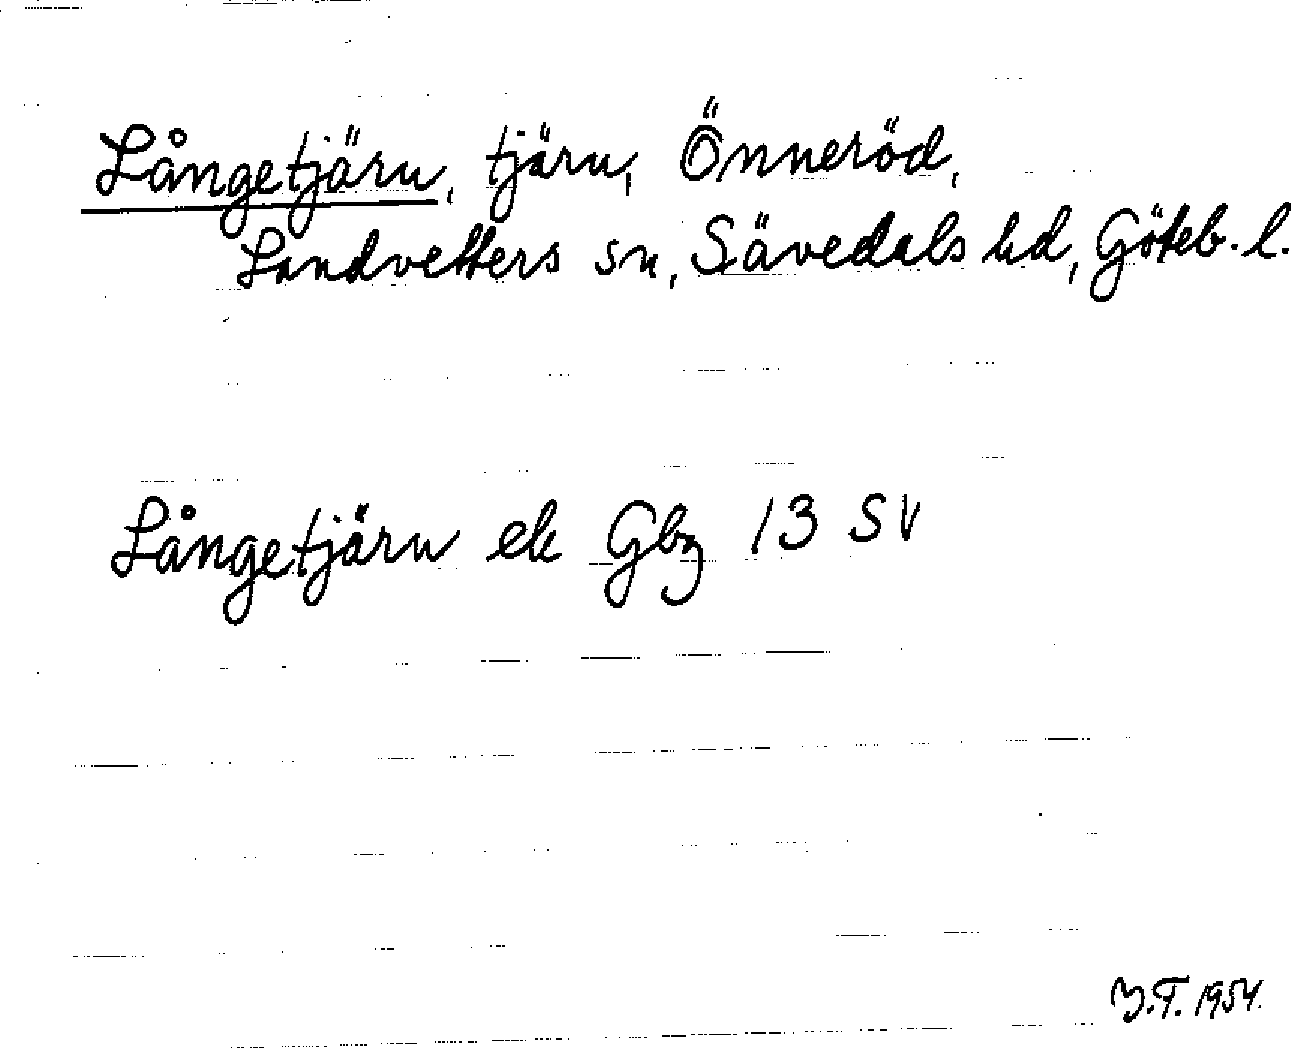 Långetjärn, tjärn, Önneröd,
Landvetters sn, Sävedals hd, Göteb. l.
Långetjärn ek Gbg 13 SV
Y.T. 1954.